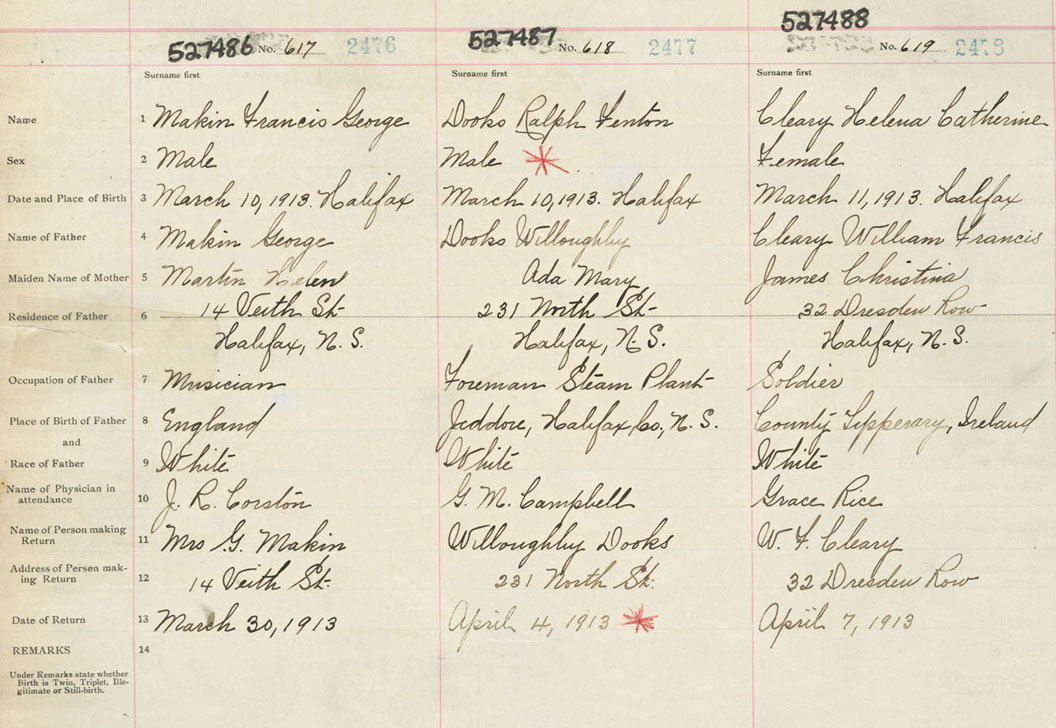 527486 No. 617 2476
527487 No. 618 2477
527488 No. 619 2478
Surname first Surname first Surname first
Name 1 Makin Francis George Dooks Ralph Fenton Cleary Helena Catherine
Sex 2 Male Male Female
Date and Place of Birth 3 March 10, 1913. Halifax March 10, 1913. Halifax March 11, 1913. Halifax
Name of Father 4 Makin George Dooks Willoughby Cleary William Francis
Maiden Name of Mother 5 Martin Helen Ada Mary James Christina
Residence of Father 6 14 Veith St. 231 North St. 32 Dresden Row
Halifax, N. S. Halifax, N. S. Halifax, N. S.
Occupation of Father 7 Musician Foreman Steam Plant Soldier
Place of Birth of Father 8 England Jeddore, Halifax Co., N. S. County Tipperary, Ireland
and
Race of Father 9 White White White
Name of Physician in
attendance 10 J. R. Corston G. M. Campbell Grace Rice
Name of Person making
Return 11 Mrs G. Makin Willoughby Dooks W. F. Cleary
Address of Person mak-
ing Return 12 14 Veith St. 231 North St. 32 Dresden Row
Date of Return 13 March 30, 1913 April 4, 1913 April 7, 1913
REMARKS 14
Under Remarks state whether
Birth is Twin, Triplet, Ille-
gitimate or Still-birth.